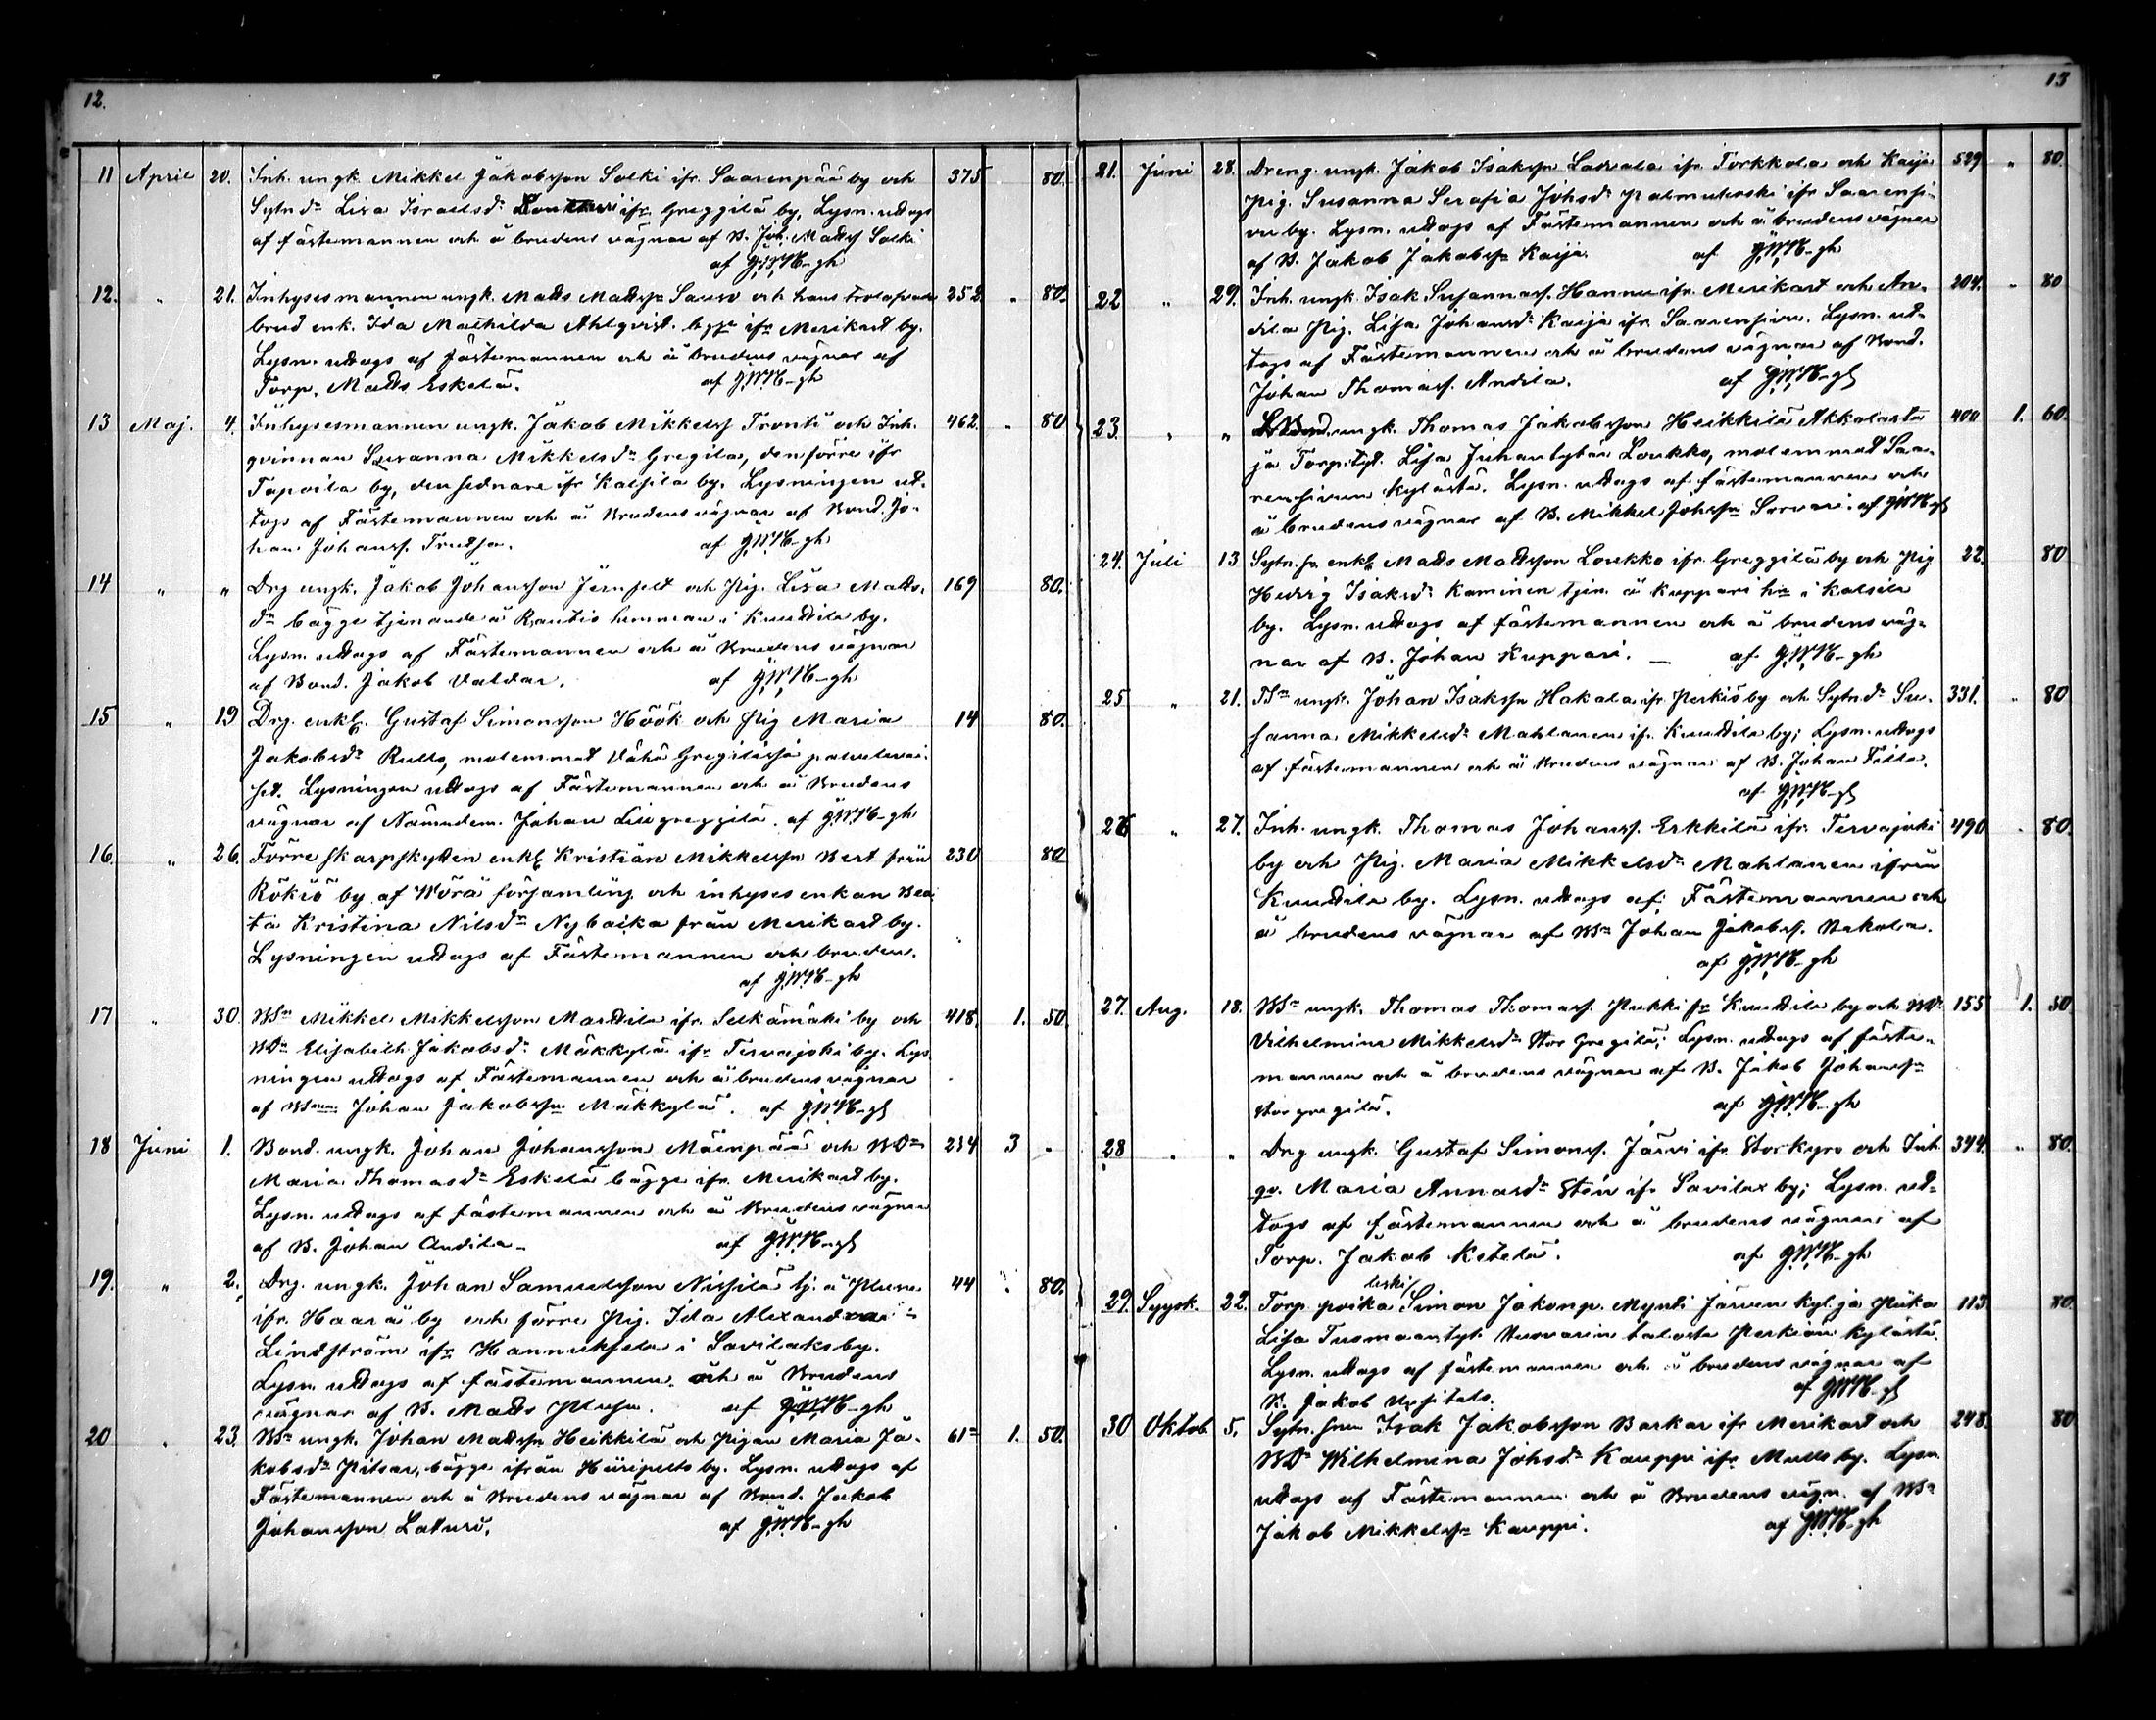 12.
11 April 20. Inh. ungk. Mikkel Jakobsson Solki ifr. Saarenpää by och 375 80.
Sytnd:r Lisa Israelsd:r ifr. Greggilä by, Lysn. uttogs
af fästemannen och å brudens vägnar af B. Joh. Matts Solki
af GWH-gh
12. " 21. Inhysesmannen ungk. Matts Mattsn Sauso och hans trolofvade 252. " 80.
brud enk. Ida Mathilda Ahlqvist. begge ifr Merikart by.
Lysn. uttogs af Fästemannen och å brudens vägnar af
Torp. Matts Eskelä. af GWH-gh
13 Maj. 4. Inhysesmannen ungk. Jakob Mikkelss Tronti och Inh. 462. " 80
qvinnan Susanna Mikkelsd:r Gregilä, den förre ifr
Tapoila by, den sednare ifr Kalsila by. Lysningen ut-
togs af Fästemannen och å Brudens vägnar af Bond. Jo-
han Johanss. Trutsa. af GWH-gh
14 " " Drg ungk. Jakob Johansson Jernfelt och Pig. Lisa Matts- 169 80.
d:r bägge tjenande å Rautio hemman i Kuuttila by.
Lysn. uttogs af Fästemannen och å Brudens vägnar
af Bond. Jakob Valdar. af GWH-gh
15 " 19 Drg. enkl. Gustaf Simonsson Höök och Pig Maria 14 80.
Jakobsd:r Rullo, molemmat Vähä Gregilässä palvelevai-
set. Lysningen uttogs af Fästemannen och å Brudens
vägnar af Nämndem. Johan Liugreggilä. af GWH-gh
16. " 26. Förre skarpskytten enkl Kristian Mikkelsson Bert från 230 80
Rökiö by af Wörå församling och inhysesenkan Bea-
ta Kristina Nilsd:r Nybacka från Merikart by.
Lysningen uttogs af Fästemannen och bruden.
af GWH-gh
17 " 30. BS:n Mikkel Mikkelsson Marttila ifr. Selkämäki by och 418. 1. 50.
BD:r Elisabeth Jakobsd:r Mäkkylä ifr Tervajoki by. Lys-
ningen uttogs af Fästemannen och å brudens vägnar
af Johan Jakobssn Mäkkylä. af GWH-gh
18 Juni 1. Bond. ungk. Johan Johansson Mäenpää och BD:r 234 3 -
Maria Thomasd:r Eskelä bägge ifr. Merikart by.
Lysn. uttogs af fästemannen och å Brudens vägnar
af B. Johan Andila. af GWH-gh
19. " 2. Drg. ungk. Johan Samuelsson Nissilä tj. å 44 " 80.
ifr. Haarä by och förre Pig. Ida Alexandra
Lindström ifr Hannuksela i Savilaks by.
Lysn. uttogs af fästemannen och å Brudens
vägnar af B. Matts af GWH-gh
20 " 23. BS:n ungk. Johan Mattssn Heikkilä och Pigan Maria Ja- 61 1. 50.
kobsd:r Pitsar, bägge ifrån Hiiripelto by. Lysn. uttogs af
Fästemannen och å Brudens vägnar af Bond. Jakob
Johansson Laturi. af GWH-gh
13
21. Juni 28. Dreng. ungk. Jakob Isakssn Laurila ifr. Torkkola och Kaija 529 " 80.
pig. Susanna Serafia Johsd:r Palmukoski ifr Saarensi-
vu by. Lysn. uttogs af Fästemannen och å brudens vägnar
af B. Jakob Jakobssn Kaija. af GWH-gh
22 " 29. Inh. ungk. Isak Susannass. Hannu ifr. Merikart och An- 204. " 80
dila Pig. Lisa Johansd:r Kaija ifr. Saarensivu. Lysn. ut-
togs af Fästemannen och å brudens vägnar af Bond.
Johan Thomass. Andila. af GWH-gh
23. " " Bond. ungk. Thomas Jakobsson Heikkilä Akkolasta 400 1. 60.
ja Torp.tyt. Lisa Juhantytär Loukko, molemmat Saa-
rensivun kylästä. Lysn. uttogs af fästemannen och
å brudens vägnar af B. Mikkel Johssn Sorvari. af GWH-gh
24. Juli 13 Sytn.sn enkl Matts Mattsson Loukko ifr. Greggilä by och Pig 22. 80
Hedvig Isaksd:r Kaminen tjen. å Kuppari hn i Kalsila
by. Lysn. uttogs af fästemannen och å brudens väg-
nar af B. Johan Kuppari. — af GWH-gh
25 " 21. TS:n ungk. Johan Isakssn Hakala ifr Perkiö by och Sytnd:r Su- 331. " 80
sanna Mikkelsd:r Mahlanen ifr. Kuuttila by; Lysn. uttogs
af fästemannen och å Brudens vägnar af B. Johan
af GWH-gh
26 " 27. Inh. ungk. Thomas Johanss. Erkkilä ifr. Tervajoki 490 . 80.
by och Pig. Maria Mikkelsd:r Mahlanen ifrån
Kuuttila by. Lysn. uttogs af Fästemannen och
å brudens vägnar af BS:n Johan Jakobss. Nakola.
af GWH-gh
27. Aug. 18. BS:n ungk. Thomas Thomass. Pukki fr Kuuttila by och BD:r 155 1. 50
Vilhelmina Mikkelsd:r Stor Gregilä; Lysn. uttogs af fäste-
mannen och å brudens vägnar af B. Jakob Johanssn
Storgregilä. af GWH-gh
28 " " Drg ungk. Gustaf Simonss. Järvi ifr. Storkyro och Inh 344. " 80.
qv. Maria Annasd:r Sten ifr Savilax by; Lysn. ut-
togs af fästemannen och å brudens vägnar af
Torp. Jakob Ketelä. af GWH-gh
leski
29. Syysk. 22. Torp. poika Simon Jakonp. Mynti Järven kyl. ja Piika 113 80.
Lisa Tuomaantyt. talosta Perkiön kylästä.
Lysn. uttogs af fästemannen och å brudens vägnar af
B. Jakob Uusitalo. af GWH-gh
30 Oktob 5. Sytn. sn Isak Jakobsson Barkar ifr Merikart och 248. 80
BD:r Wilhelmina Johsd:r Kauppi ifr. Mullo by. Lysn.
uttogs af Fästemannen och å Brudens vägn. af BS:n
Jakob Mikkelssn Kauppi. af GWH-gh